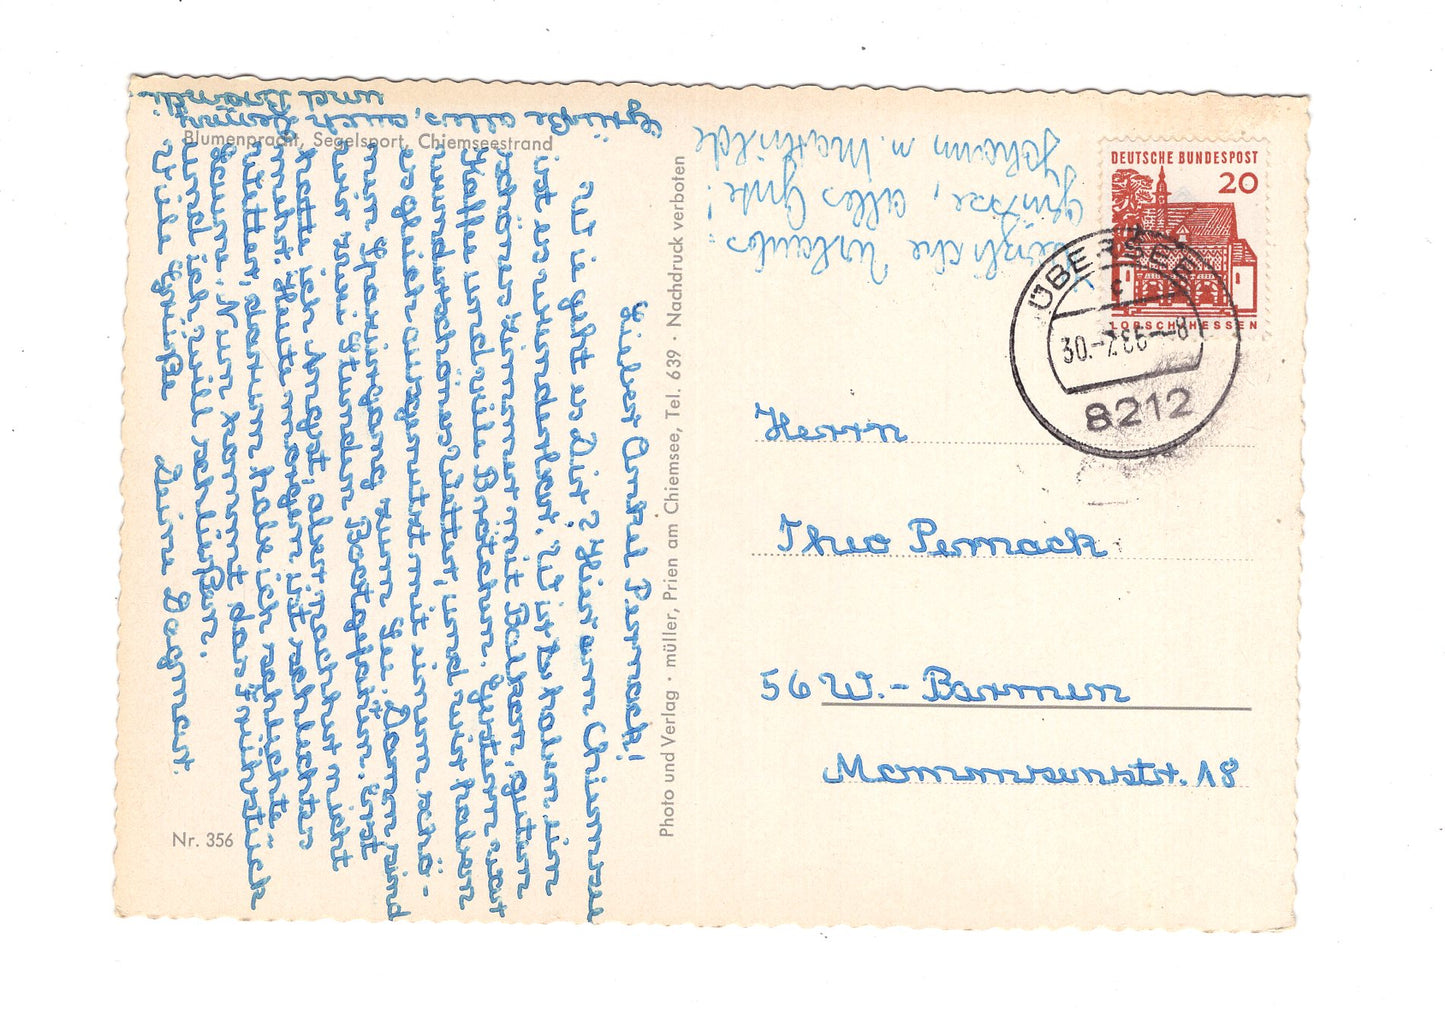 Blumenpracht, Segelsport, Chiemseestrand
Lieber Onkel Pernack!
Wie geht es Dir? Hier am Chiemsee
ist es wunderbar. Wir haben ein
schönes Zimmer mit Balkon, guten
Kaffee und viele Brötchen. Gestern war
wunderschönes Wetter, und wir haben
es gleich ausgenutzt mit einem schö-
nen Spaziergang zum See. Dann sind
wir zwei Stunden Boot gefahren. Erst
hatte ich Angst, aber nachher nicht
mehr. Heute morgen ist schlechtes
Wetter, darum habe ich
Nun kommt das Frühstück
und ich will schließen.
Viele Grüße Deine Dagmar.
Grüße alles, auch
und
Photo und Verlag · müller, Prien am Chiemsee, Tel. 639 · Nachdruck verboten
Nr. 356
Herzliche Urlaubs-
grüsse, alles Gute!
Johann u. Mathilde
DEUTSCHE BUNDESPOST
20
LORSCH/HESSEN
ÜBERSEE
c
30.-7.66--8
8212
Herrn
Theo Pernack
56 W.-Barmen
Mommsenstr. 18